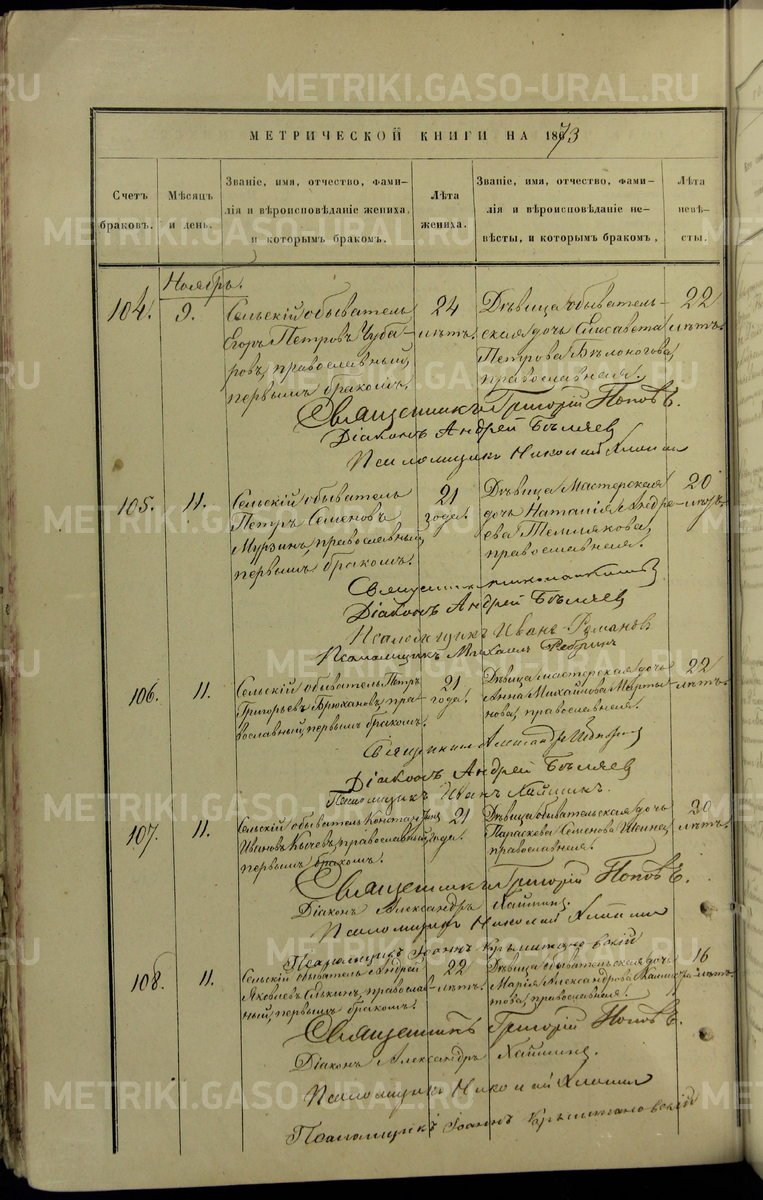 METRIKI.GASO-URAL.RU
МЕТРИЧЕСКОЙ КНИГИ НА 1873
Счетъ браковъ.
Мѣсяцъ и день.
Званіе, имя, отчество, фами-
лія и вѣроисповѣданіе жениха,
и которымъ бракомъ.
Лѣта жениха.
Званіе, имя, отчество, фами-
лія и вѣроисповѣданіе не-
вѣсты, и которымъ бракомъ,
Лѣта невѣ-
сты.
Ноябрь.
104. 9. Сельскій обыватель 24 Дѣвица обыватель- 22
Егоръ Петровъ Чуба- лѣтъ. ская дочь Елисавета лѣтъ.
ровъ, православный, Петрова Бѣлоногова,
первымъ бракомъ. православная.
Священникъ Григорій Поповъ.
Діаконъ Андрей Бѣляев
Псаломщикъ Николай
105. 11. Сельскій обыватель 21 Дѣвица Мастерская 20
Петръ Семеновъ года. дочь Наталія Андре- лѣтъ.
Мурзинъ, православный, ева Темлякова,
первымъ бракомъ. православная.
Священникъ
Діаконъ Андрей Бѣляев
Псаломщикъ Иванъ Романовъ
Псаломщикъ Михаилъ
106. 11. Сельскій обыватель Петръ 21 Дѣвица мастерская дочь 22
Григорьевъ Брюхановъ, пра- года. Анна Михайлова Марты- лѣтъ.
вославный, первымъ бракомъ. нова, православная.
Священникъ
Діаконъ Андрей Бѣляев
Псаломщикъ Иванъ
107. 11. Сельскій обыватель 21 Дѣвица обывательская дочь 20
Ивановъ православный, года. Параскева Семенова лѣтъ.
первымъ бракомъ. православная.
Священникъ Григорій Поповъ.
Діаконъ Александръ
Псаломщикъ Николай
Псаломщикъ Іоаннъ
108. 11. Сельскій обыватель Андрей 22 Дѣвица обывательская дочь 16
Яковлевъ православ- лѣтъ. Марія Александрова лѣтъ.
ный, первымъ бракомъ. православная.
Священникъ Григорій Поповъ.
Діаконъ Александръ
Псаломщикъ Николай
Псаломщикъ Іоаннъ